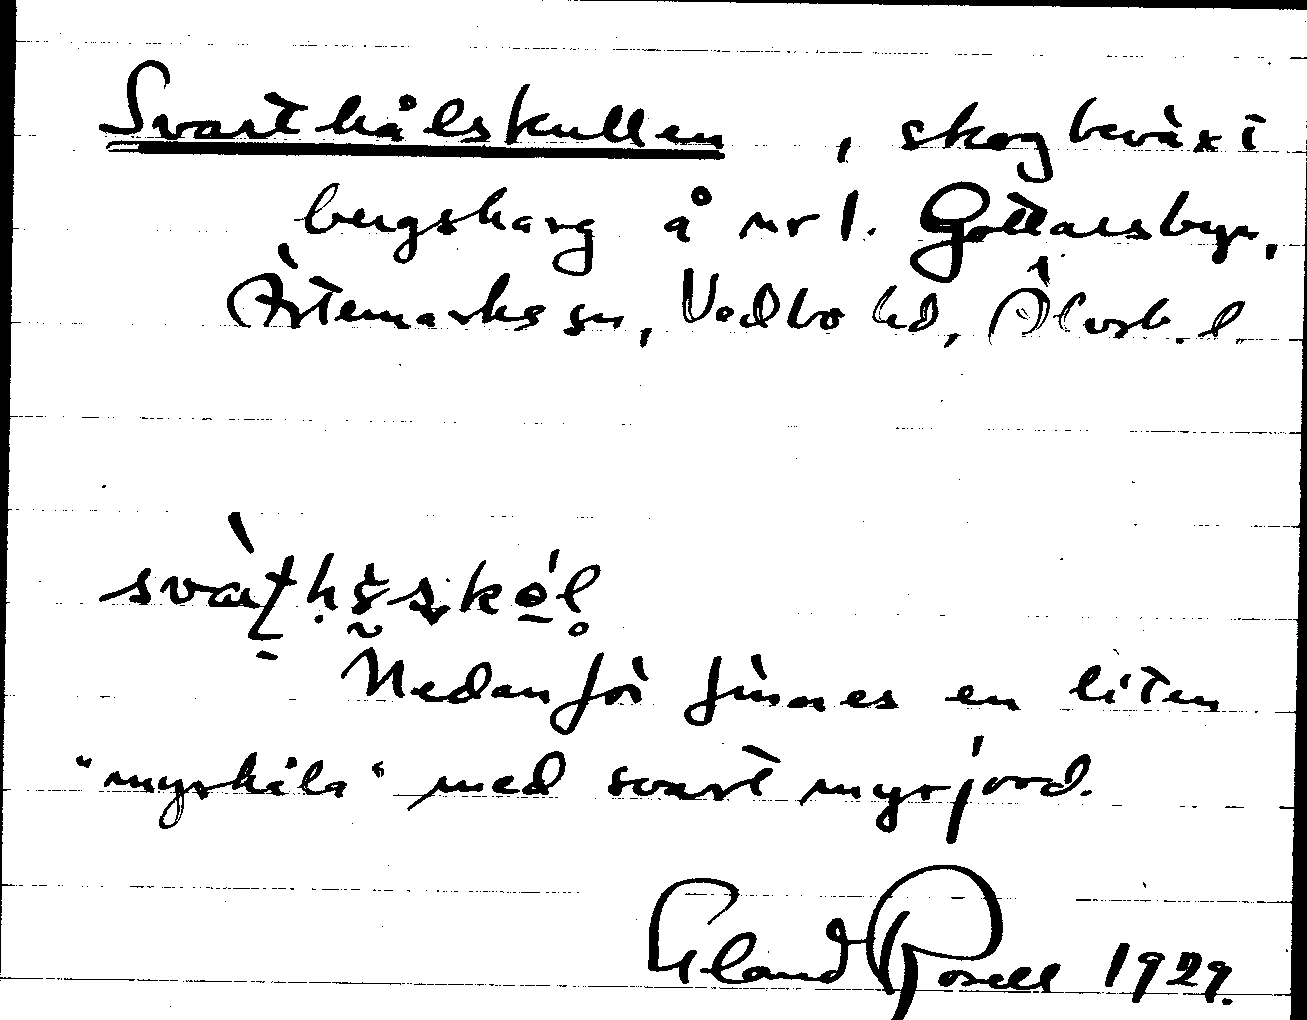 Svarthålskullen, skogbeväxt
bergsharg å nr 1. Gottarsbyn,
Ärtemarks sn, Vedbo hd, Älvsb. l.
Nedanför finnes en liten
"myrhåla" med svart myrjord.
Erland Rosell 1929.